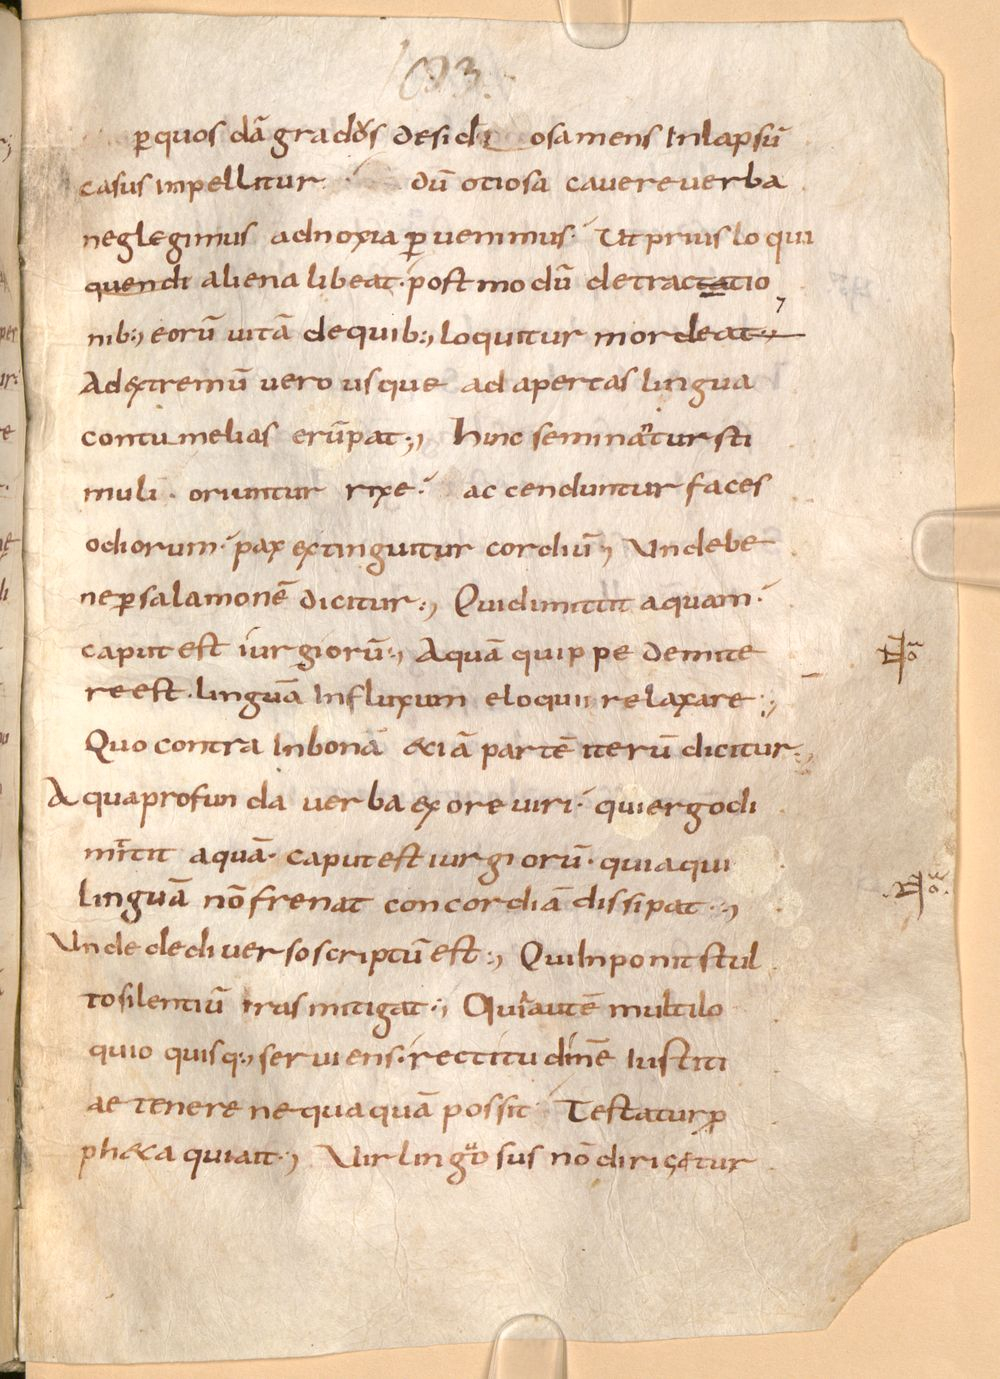 103.
ꝑquos dā gradꝰs desidi osa mens In lapsū
casus inpellitur dū otiosa cavere verba
neglegimus ad noxia ꝑvenimus· Ut prius loqui
quendi aliena libeat· postmodū detractatio
nib:, eorū vitā de quib:, loquitur mordeat·,
Ad extremū vero usque ad apertas lingua
contumelias erūpat:, hinc seminatur sti
muli· oriuntur rixe· accenduntur faces
odiorum· pax extinguitur cordiū, Unde be
ne ꝑ salamonē dicitur:, Qui dimittit aquam·
caput est iurgiorū:, Aquā quippe demitte
re est· linguā In fluxum eloquii relaxare:,
Quo contra In bonā &iā partē iterū dicitur:,
Aqua profunda verba ex ore viri· qui ergo di
mittit aquā· caput est iurgiorū· quia qui
linguā nō frenat concordiā dissipat·,
Unde de diverso scriptū est:, Qui Inponit stul
to silentiū iras mitigat:, Quia autē multilo
quio quisq:, serviens· rectitudinē Iustiti
ae tenere nequaquā possit Testatur ꝓ
ph&a qui ait:, Vir linguosus nō dirigetur